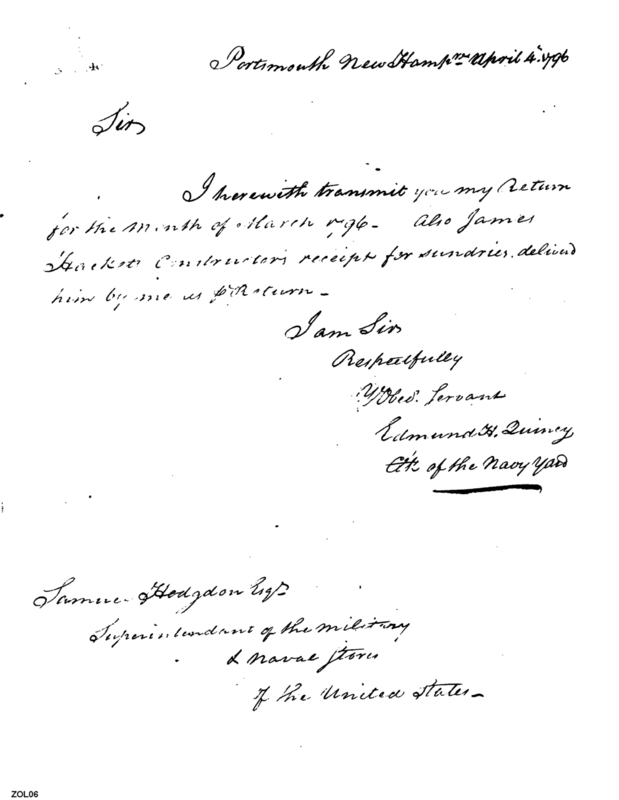 Portsmouth New Hampre April 4th 1796
Sir
I herewith transmit you my Return
for the Month of March 1796 - Also James
Hacketts Constructors receipt for sundries deliverd
him by me as pr Return -
I am Sir
Respectfully
Yr Obed. Servant
Edmund H. Quincy
Clk of the Navy Yard
Samuel Hodgdon Esqr
Superintendant of the military
& naval stores
of the United States -
ZOL06